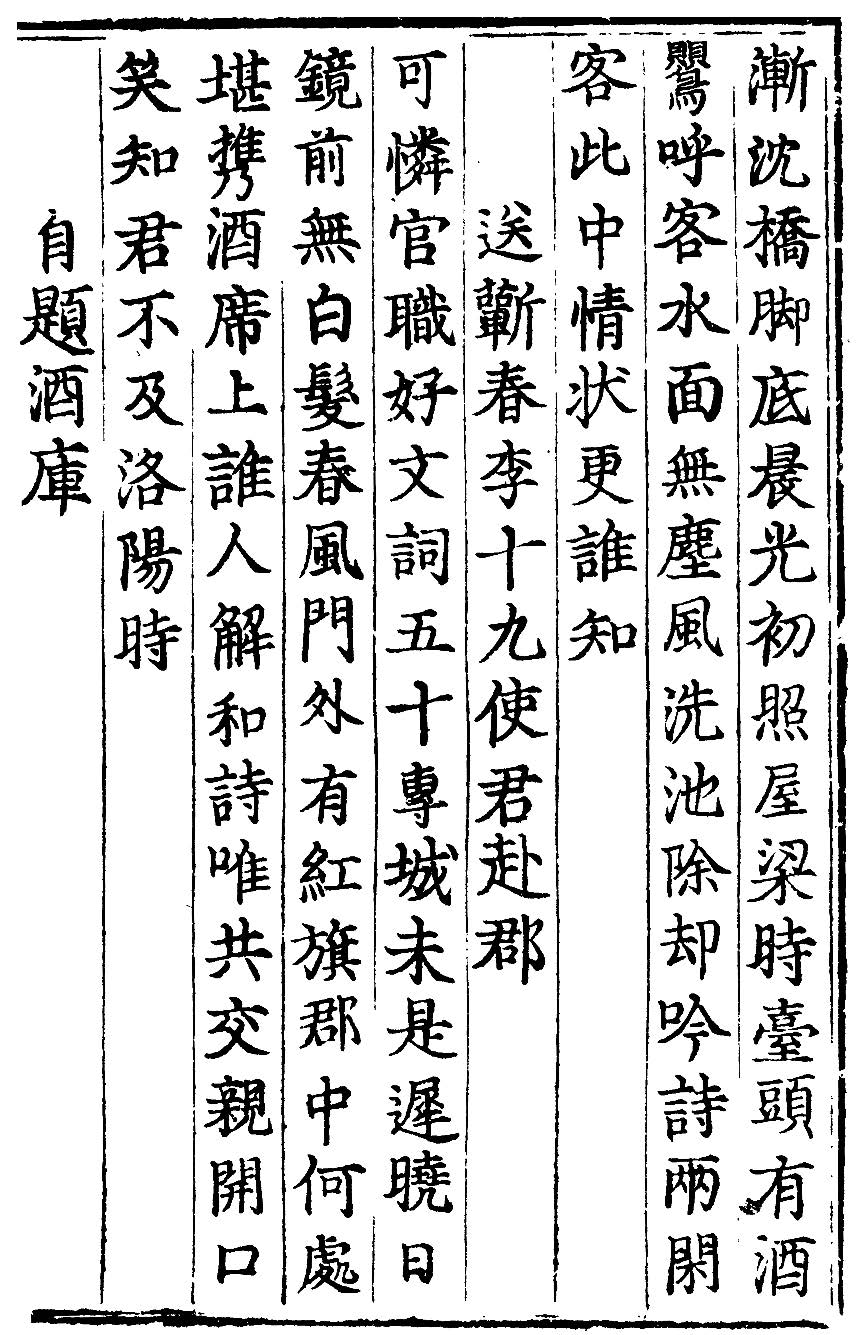 漸沈橋脚底晨光初照屋梁時臺頭有酒
鸎呼客水面無塵風洗池除却吟詩兩閑
客此中情狀更誰知
送蘄春李十九使君赴郡
可憐官職好文詞五十專城未是遲曉日
鏡前無白髮春風門外有紅旗郡中何處
堪攜酒席上誰人解和詩唯共交親開口
笑知君不及洛陽時
自題酒庫